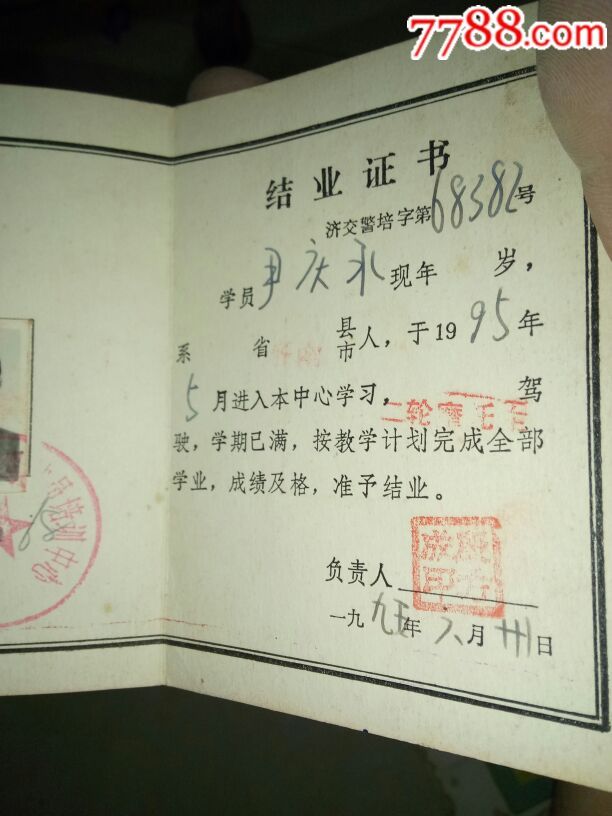 7788.com
结业证书
济交警培字第68382号
学员尹庆永现年 岁，
系 省 县市人，于1995年
5月进入本中心学习， 驾
二轮
驶，学期已满，按教学计划完成全部
学业，成绩及格，准予结业。
负责人
一九九五年六月卅日
培训中心